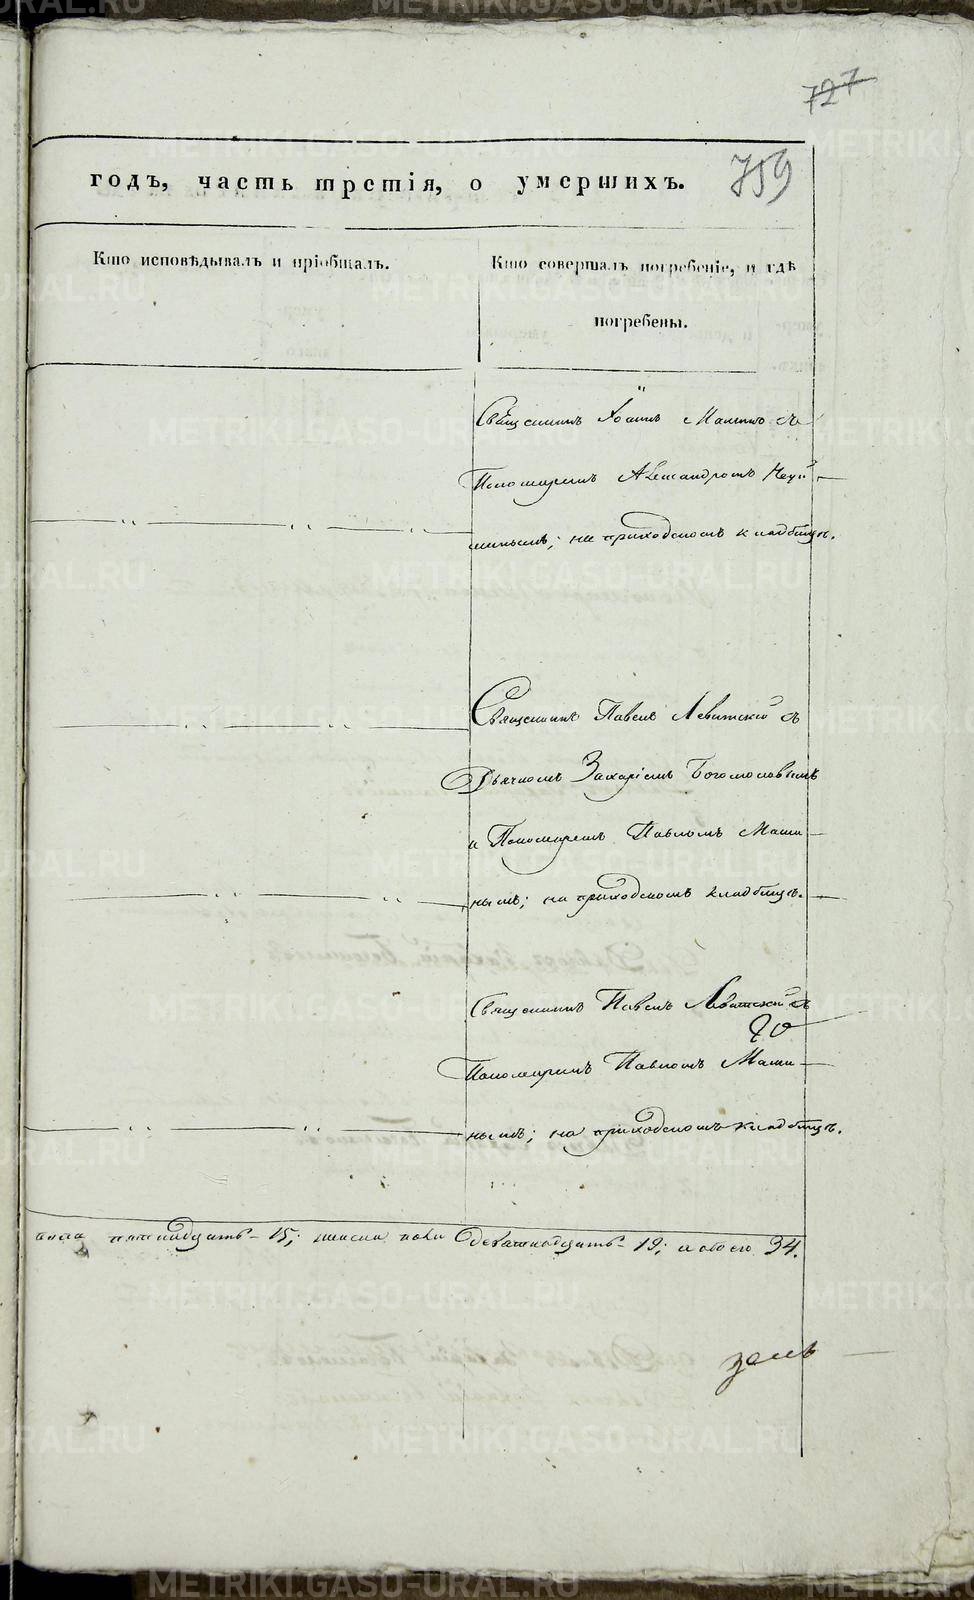 727
759
годъ, часть третія, о умершихъ.
Кто исповѣдывалъ и пріобщалъ.
Кто совершалъ погребеніе, и гдѣ
погребены.
Священникъ Іоаннъ съ
Пономаремъ Александромъ
на приходскомъ кладбищѣ.
Священникъ Павелъ Левитскій съ
Дьячкомъ Захаріемъ Богомоловымъ
и Пономаремъ Павломъ Маши-
нымъ; на приходскомъ кладбищѣ.
Священникъ Павелъ Левитскій съ
Пономаремъ Павломъ Маши-
нымъ; на приходскомъ кладбищѣ.
пола пятнадцать - 15; женска пола девятнадцать - 19; и обоего 34.
METRIKI.GASO-URAL.RU